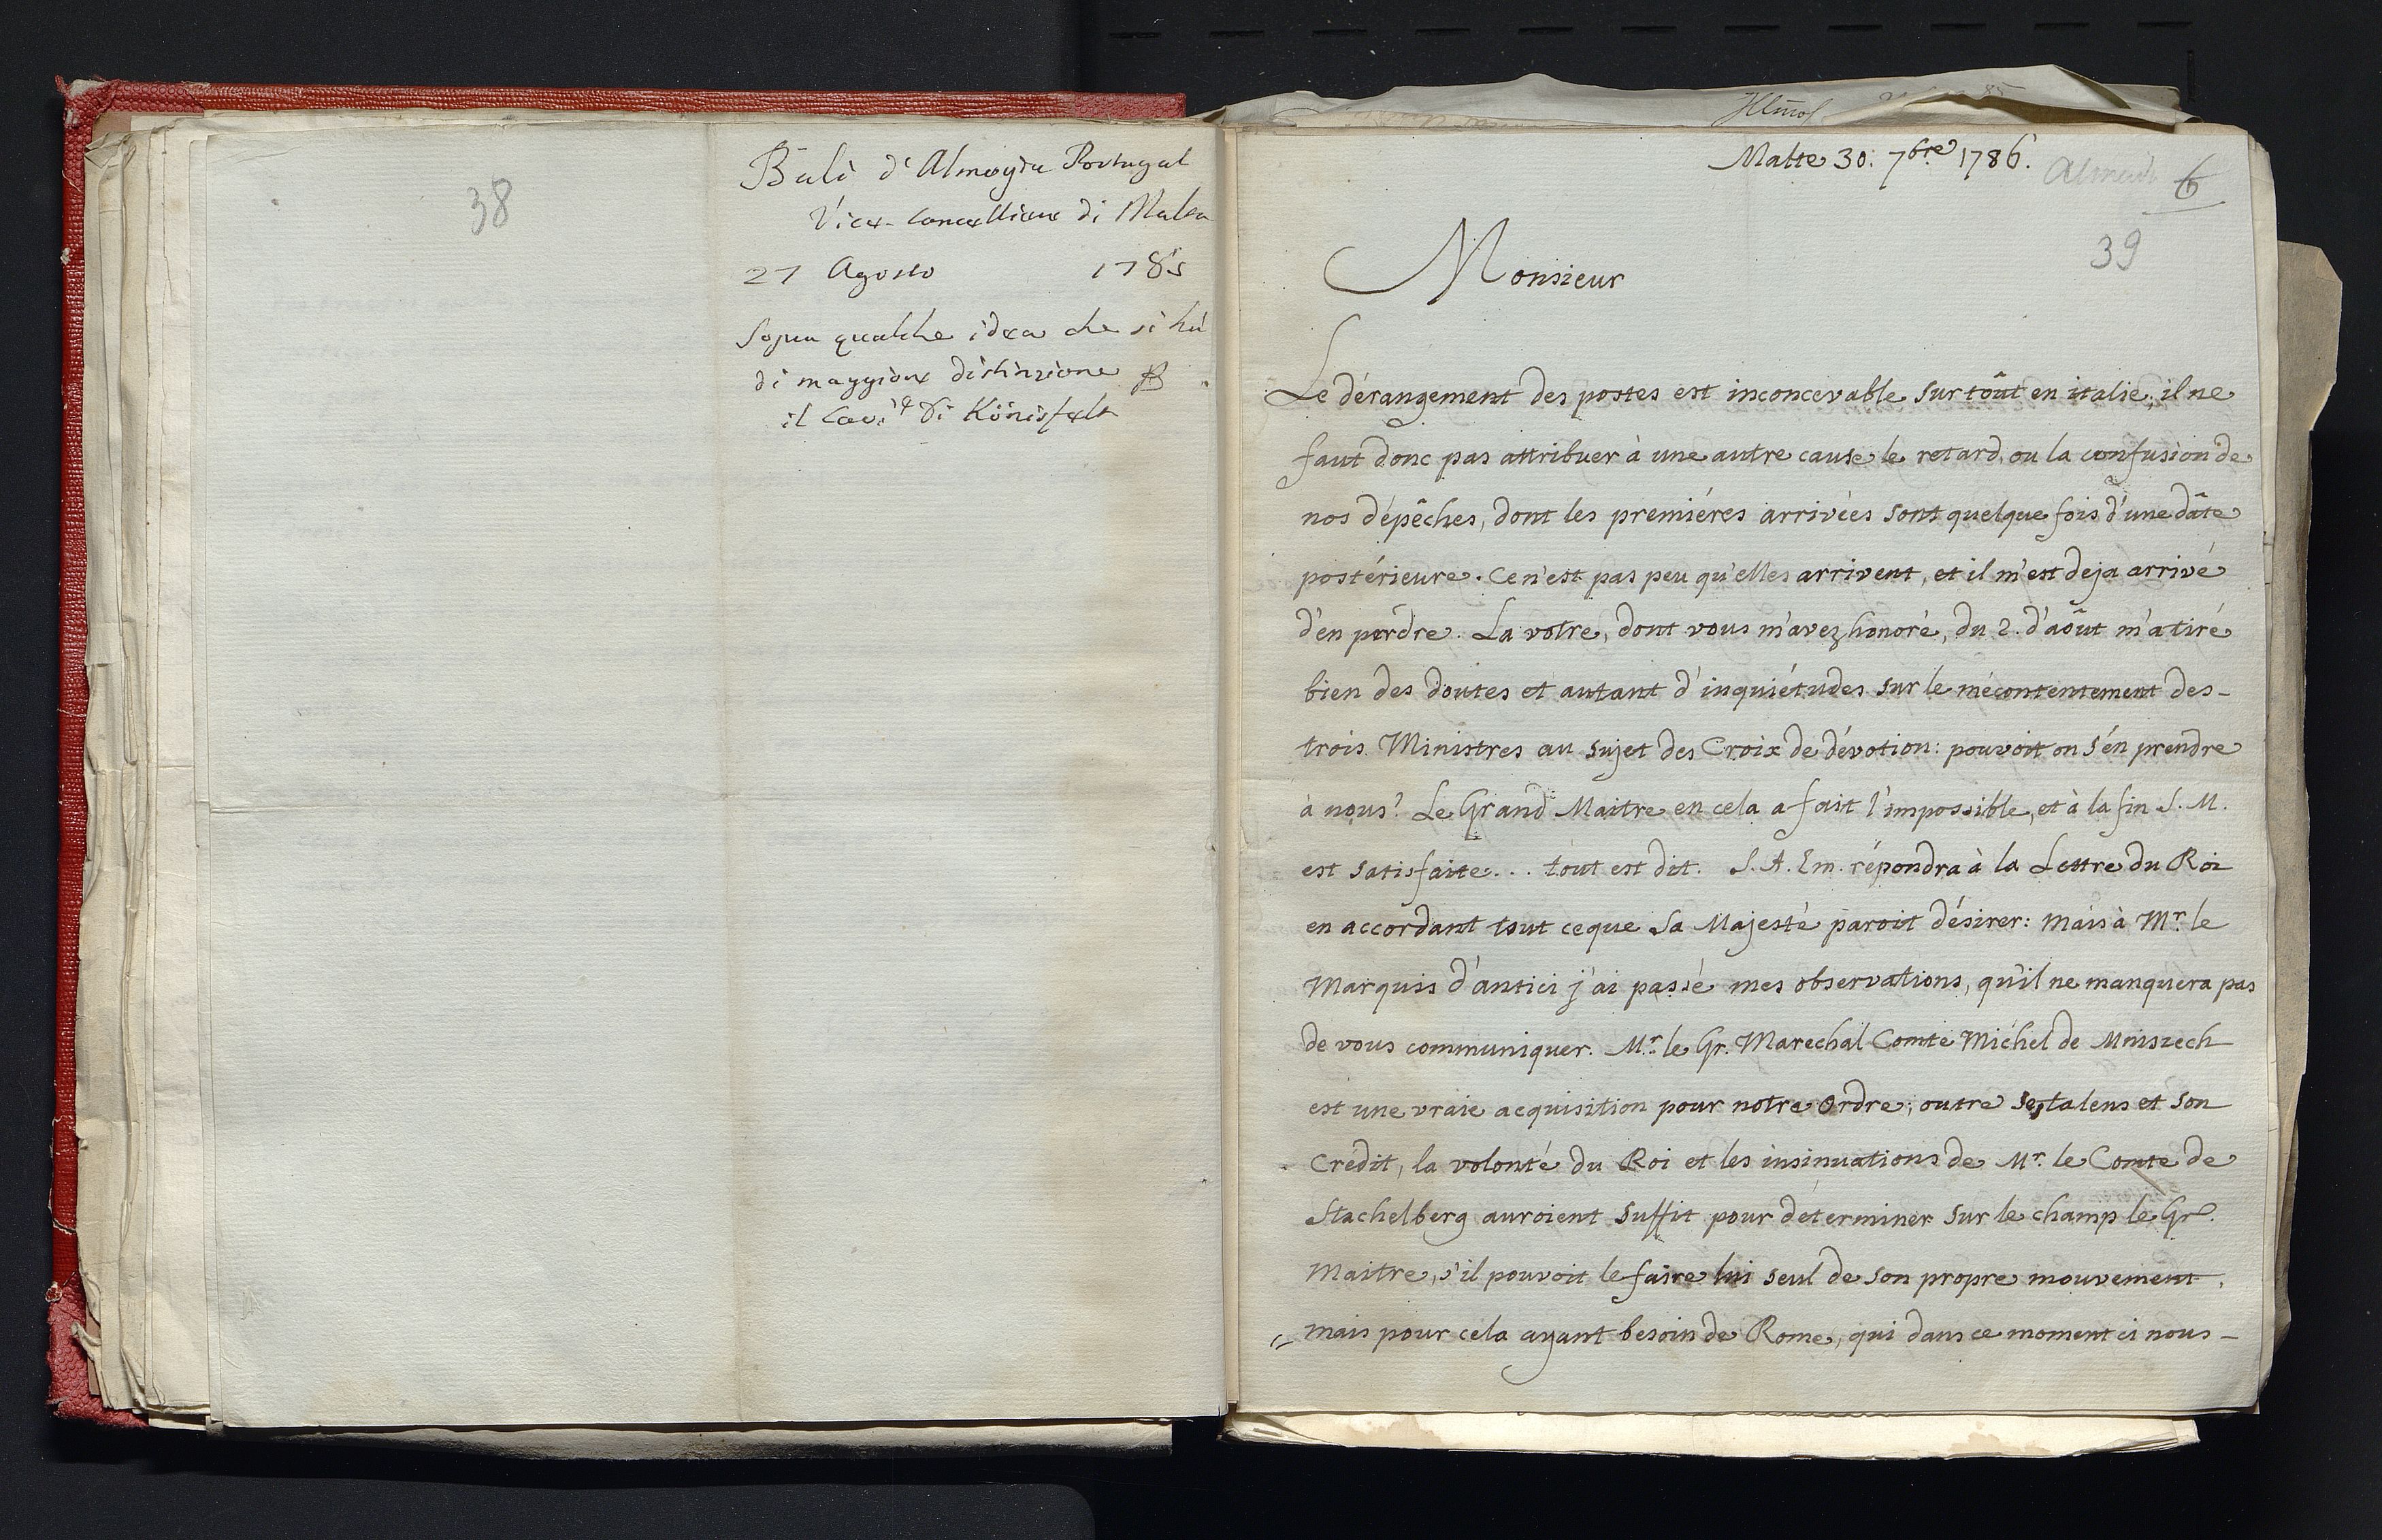 38
Bali d'Almeyda Portugal
Vice-Cancelliere di Malta
27 Agosto 1785
Sopra qualche idea che si hà
di maggiore distinzione
il Cav.e di Königsfelt
Malte 30. 7bre 1786.
Almeida 6
39
Monsieur
Le dérangement des postes est inconcevable surtôut en italie; il ne
faut donc pas attribuer à une autre cause le retard, ou la confusion de
nos dépêches, dont les premiéres arrivées sont quelque fois d'une dâte
postérieure. Ce n'est pas peu qu'elles arrivent, et il m'est deja arrivé
d'en perdre. La votre, dont vous m'avez honoré, du 2. d'aôut m'a tiré
bien des doutes et autant d'inquiétudes sur le mécontentement des-
trois Ministres au sujet des Croix de dévotion: pouvoit on s'én prendre
à nous? Le Grand Maitre en cela a fait l'impossible, et à la fin S. M.
est satisfaite... tout est dit. S. A. Em. répondra à la Lettre du Roi
en accordant tout ceque Sa Majesté paroit désirer: mais à Mr. le
Marquis d'antici j'ai passé mes observations, qu'il ne manquera pas
de vous communiquer. Mr. le Gr. Marechal Comte Michel de Mniszech
est une vraie acquisition pour notre Ordre; outre ses talens et son
Crédit, la volonté du Roi et les insinuations de Mr. le Comte de
Stachelberg auroient suffit pour déterminer sur le champ le Gr.
Maitre, s'il pouvoit le faire lui seul de son propre mouvement,
mais pour cela ayant besoin de Rome, qui dans ce moment ci nous-